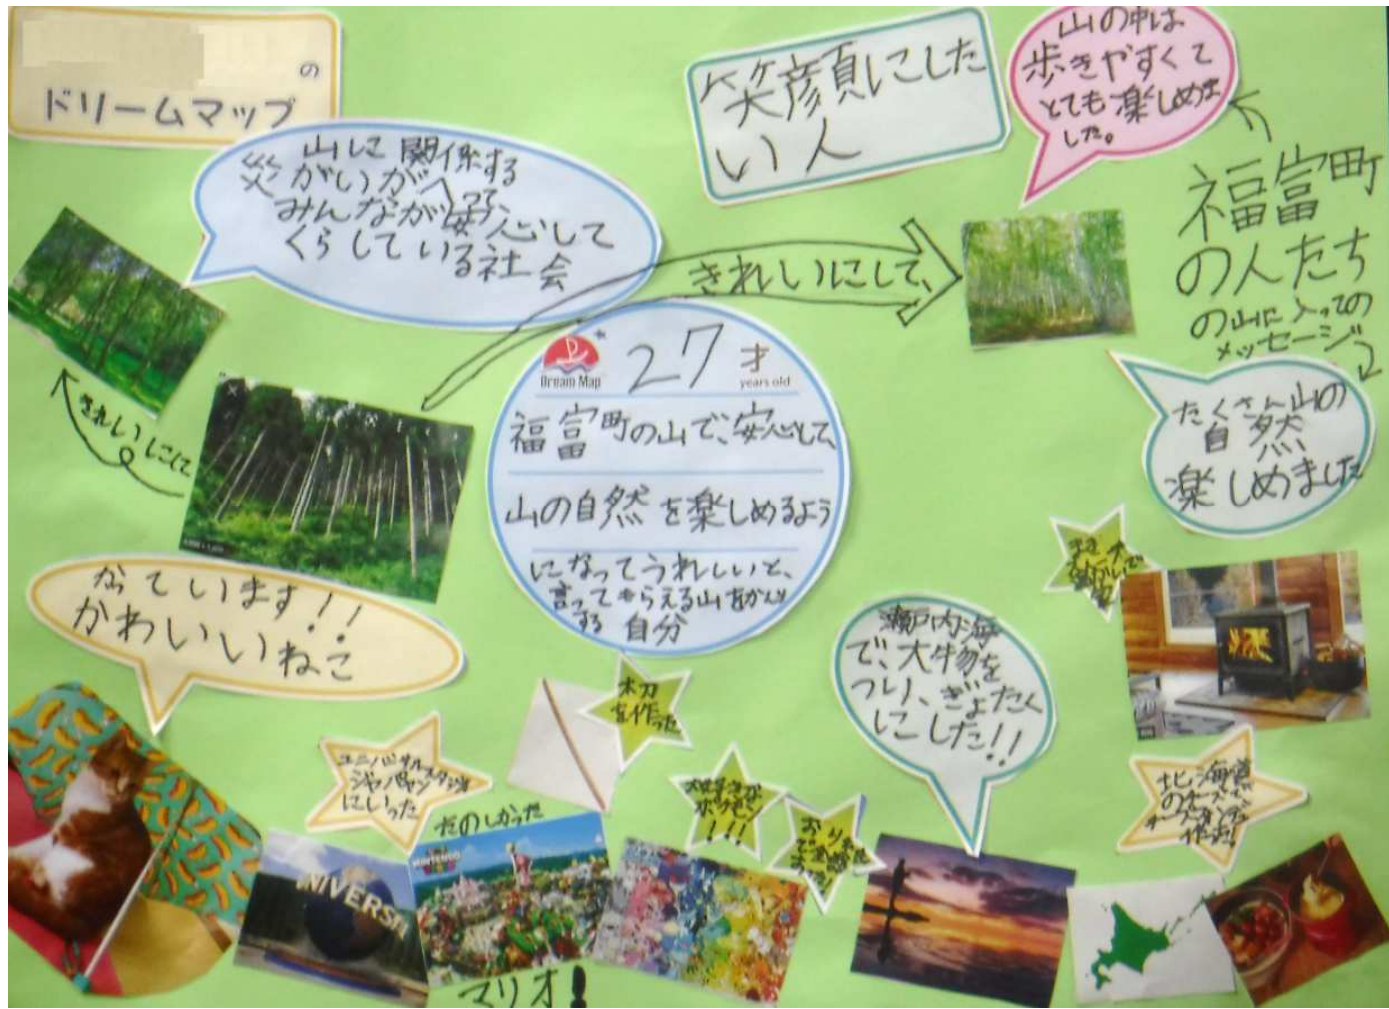 の
ドリームマップ
山に関係する
災がいがへって、
みんなが安心して
くらしている社会
笑顔にした
い人
山の中は
歩きやすくて
とても楽しめま
した。
福富町
の人たち
の山に入っての
メッセージ
きれいにして、
きれいにして
Dream Map
27才
years old
福富町の山で、安心して、
山の自然を楽しめるよう
になってうれしいと、
言ってもらえる山をかんり
する 自分
たくさん山の
自然
楽しめました
かっています!!
かわいいねこ
木刀
を作った
瀬戸内海
で、大物を
つり、ぎょたく
にした!!
ユニバーサルスタジオ
ジャパン
にいった
たのしかった
大好きな
ポケモン
!!!
おり
北海道
の
UNIVERSAL
NINTENDO
マリオ!